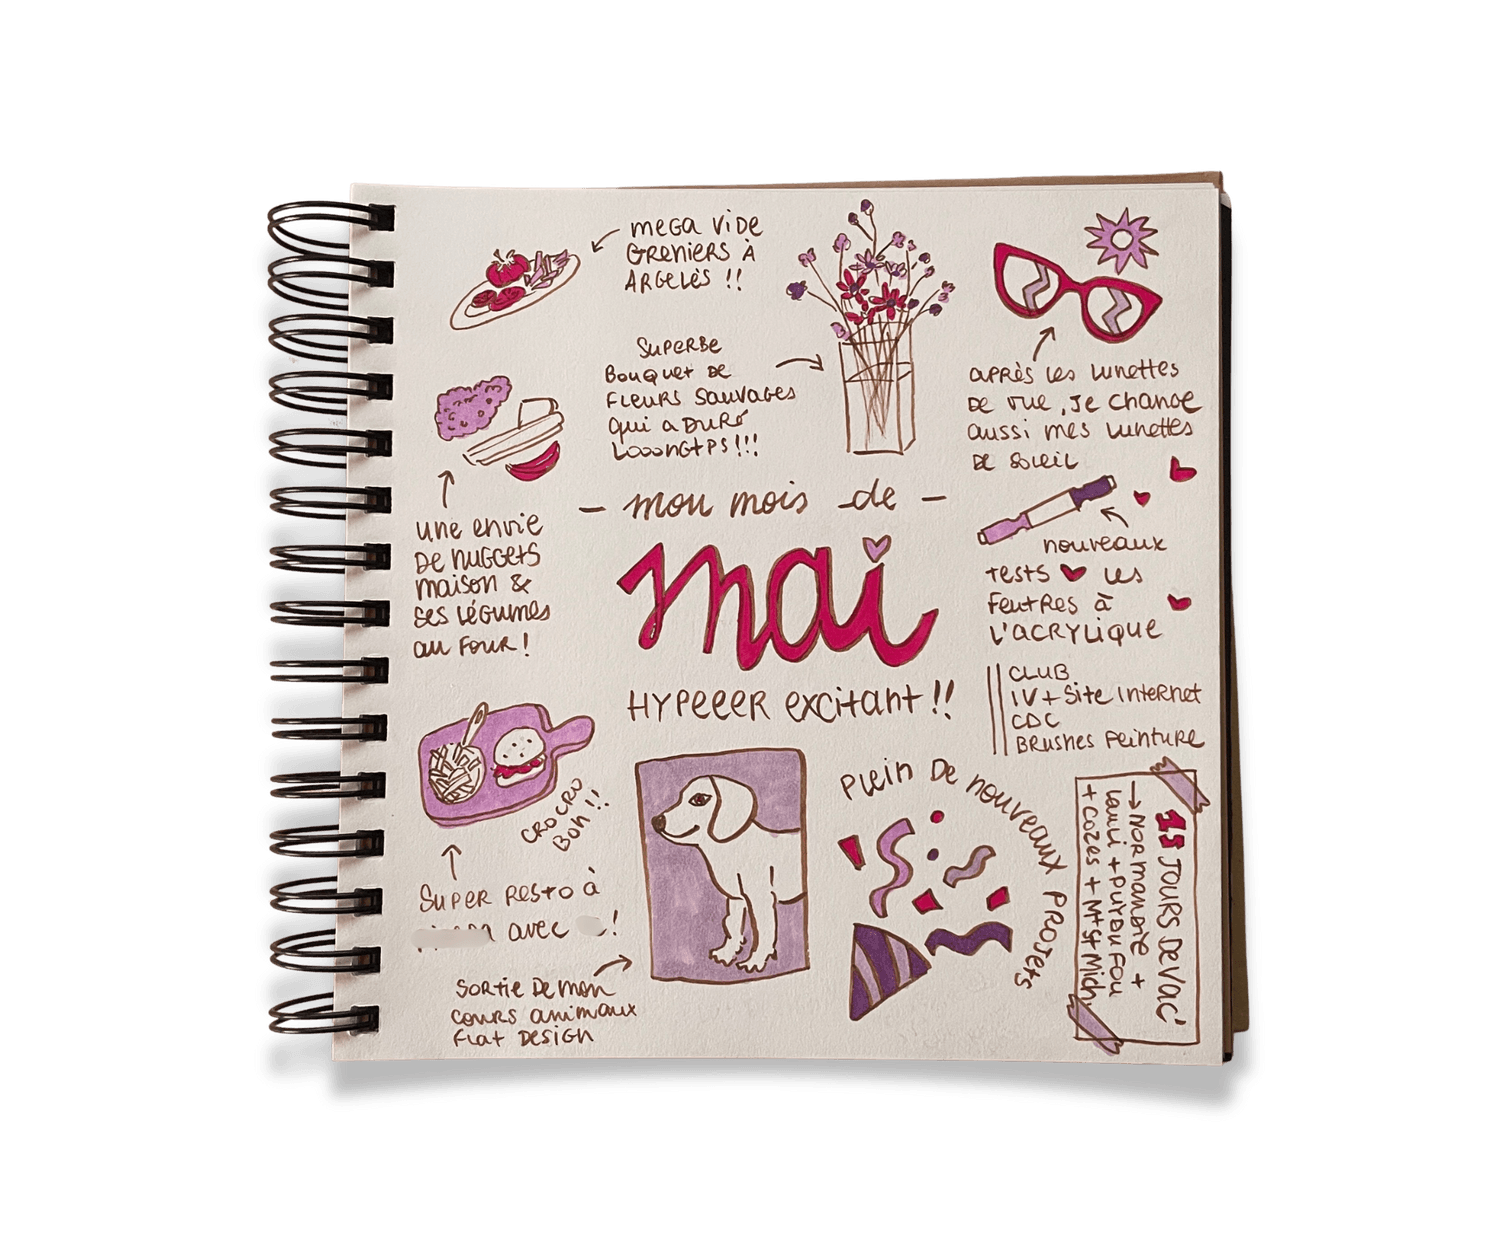 MEGA VIDE
GRENIERS À
ARGELÈS !!
SUPERBE
BOUQUET DE
FLEURS SAUVAGES
QUI A DURÉ
LOOONGTPS!!!
APRÈS LES LUNETTES
DE VUE, JE CHANGE
AUSSI MES LUNETTES
DE SOLEIL
UNE ENVIE
DE NUGGETS
MAISON &
SES LÉGUMES
AU FOUR !
- mon mois de -
mai
HYPEEER EXCITANT !!
NOUVEAUX
TESTS ♥ LES
FEUTRES À
L'ACRYLIQUE
CLUB
IV + SITE INTERNET
CDC
BRUSHES PEINTURE
CROCRO
BON !!
SUPER RESTO À
AVEC !
SORTIE DE MON
COURS ANIMAUX
FLAT DESIGN
PLEIN DE NOUVEAUX PROJETS
15 JOURS DE VAC'
→ NORMANDIE +
+ PUY DU FOU
+ COZES + MT ST MICH.